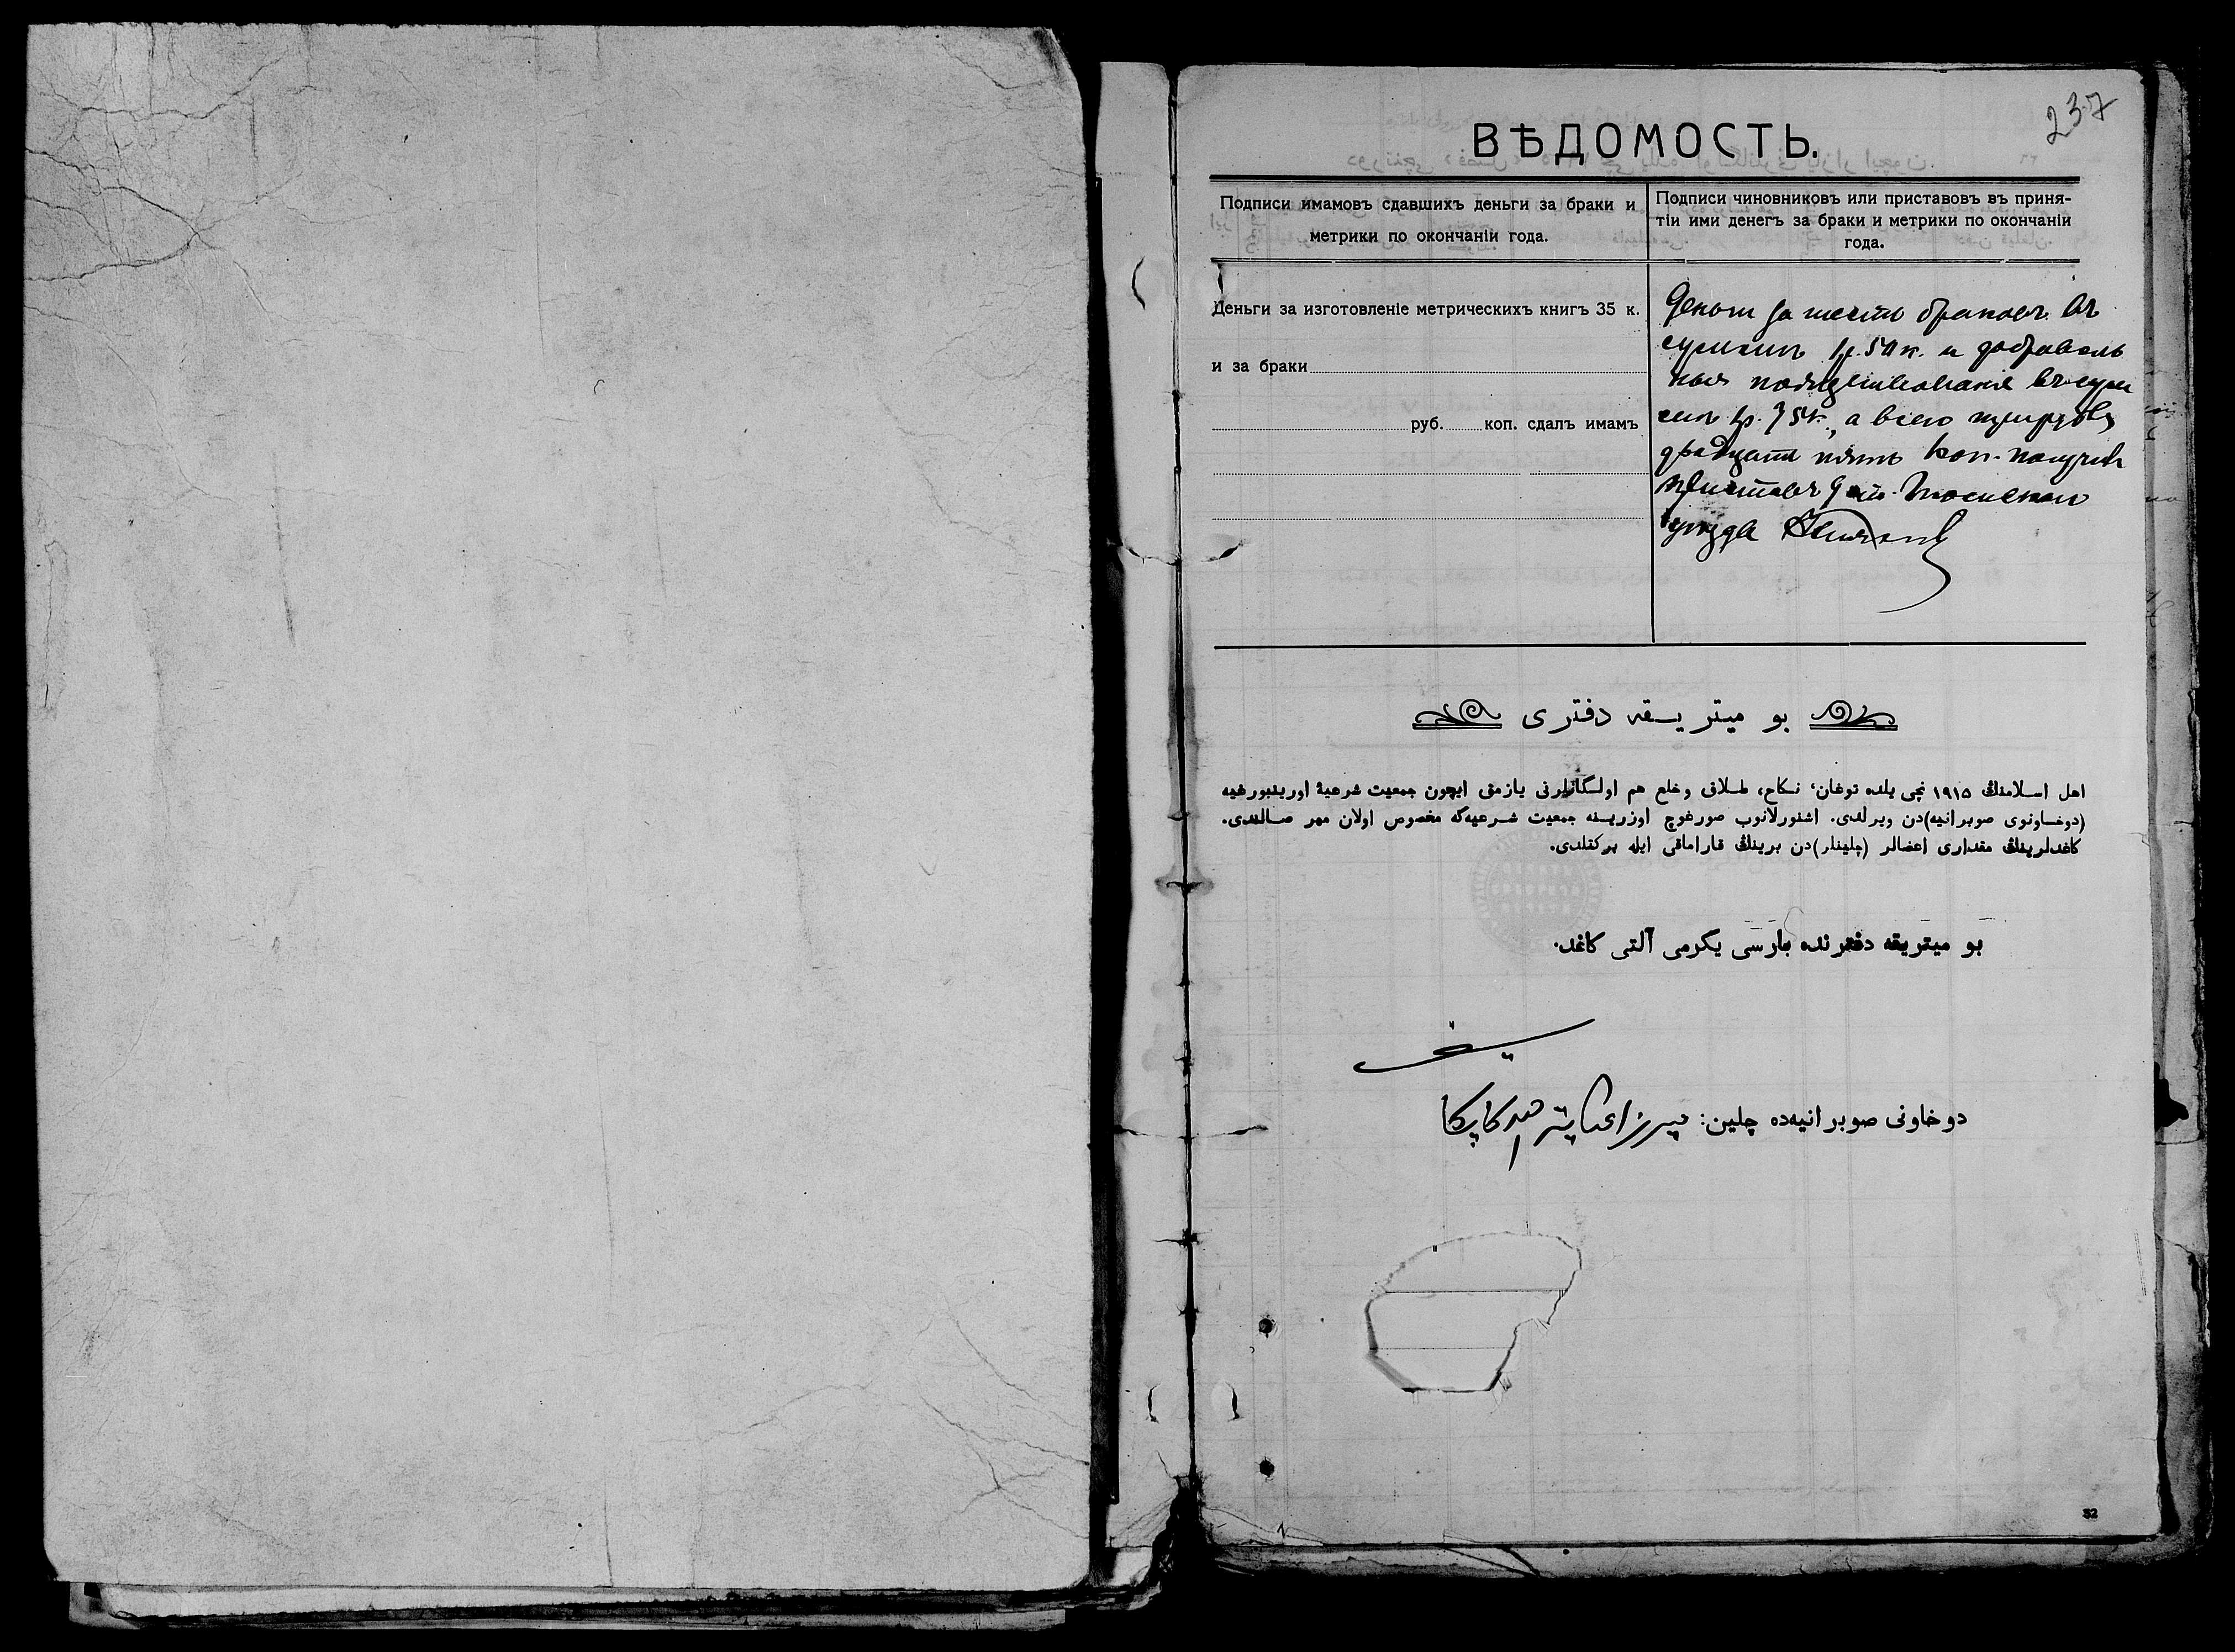 237
ВѢДОМОСТЬ.
Подписи имамовъ сдавшихъ деньги за браки и
метрики по окончаніи года.
Подписи чиновниковъ или приставовъ въ приня-
тіи ими денегъ за браки и метрики по окончаніи
года.
Деньги за изготовленіе метрическихъ книгъ 35 к.
и за браки
руб. коп. сдалъ имамъ
Деньги за шесть браковъ въ
суммѣ 1р. 50 к. и доброволь
ныя въ сум
мѣ 1р. 75к., а всего три руб.
двадцать пять коп. получилъ
приставъ
уѣзда
بو ميتريسقه دفترى
اهل اسلامنڭ ١٩١٥ نچى يلده توغان، نكاح، طلاق و خلع هم اولگانلرنى يازمق ايچون جمعيت شرعيهٔ اورينبورغيه
(دوخاونوى صوبرانيه)دن ويرلدى. اشنورلانوب صورغوچ اوزرينه جمعيت شرعيه‌گه مخصوص اولان مهر صالندى.
كاغدلرينڭ مقدارى اعضالر (چلينلر)دن برينڭ قاراماقى ايله بركتلدى.
بو ميتريقه دفترنده بارسى يكرمى آلتى كاغد.
دوخاونى صوبرانيه‌ده چلين:
52